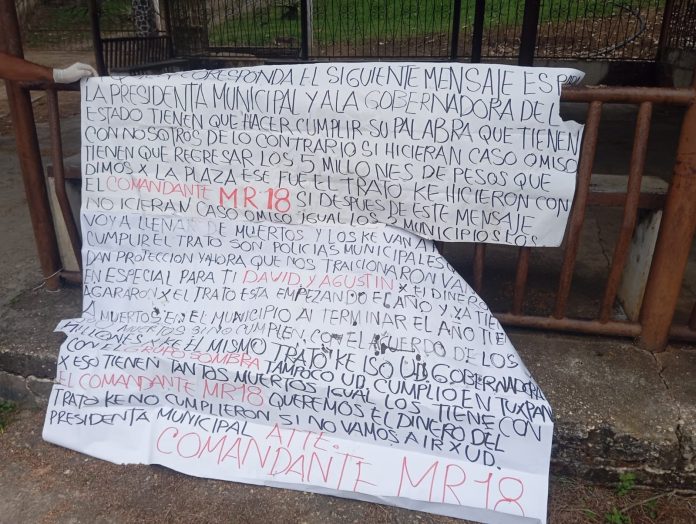 CORRESPONDA EL SIGUIENTE MENSAJE ES PA
LA PRESIDENTA MUNICIPAL Y ALA GOBERNADORA DEL
ESTADO TIENEN QUE HACER CUMPLIR SU PALABRA QUE TIENEN
CON NOSOTROS DE LO CONTRARIO SI HICIERAN CASO OMISO
TIENEN QUE REGRESAR LOS 5 MILLONES DE PESOS QUE
DIMOS A LA PLAZA ESE FUE EL TRATO KE HICIERON CON
EL COMANDANTE MR18 SI DESPUES DE ESTE MENSAJE
NO ICIERAN CASO OMISO IGUAL LOS 2 MUNICIPIOS LOS
VOY A LLENAR DE MUERTOS Y LOS KE VAN A
CUMPLIR EL TRATO SON POLICIAS MUNICIPALES
DAN PROTECCION YAHORA QUE NOS TRAICIONARON VAN
EN ESPECIAL PARA TI DAVID Y AGUSTIN X EL DINERO
AGARARON X EL TRATO ESTA EMPEZANDO EL AÑO Y YA TIENEN
MUERTOS EL MUNICIPIO AL TERMINAR EL AÑO TIEN
MUERTOS SI NO CUMPLEN CON EL ACUERDO DE LOS
MILLONES X KE EL MISMO TRATO KE ISO UD GOBERNADORA
CON EL GRUPO SOMBRA TAMPOCO UD. CUMPLIO EN TUXPAN
X ESO TIENEN TANTOS MUERTOS IGUAL LOS TIENE CON
EL COMANDANTE MR18 QUEREMOS EL DINERO DEL
TRATO KE NO CUMPLIERON SI NO VAMOS A IR X UD.
PRESIDENTA MUNICIPAL ATTE.
COMANDANTE MR18